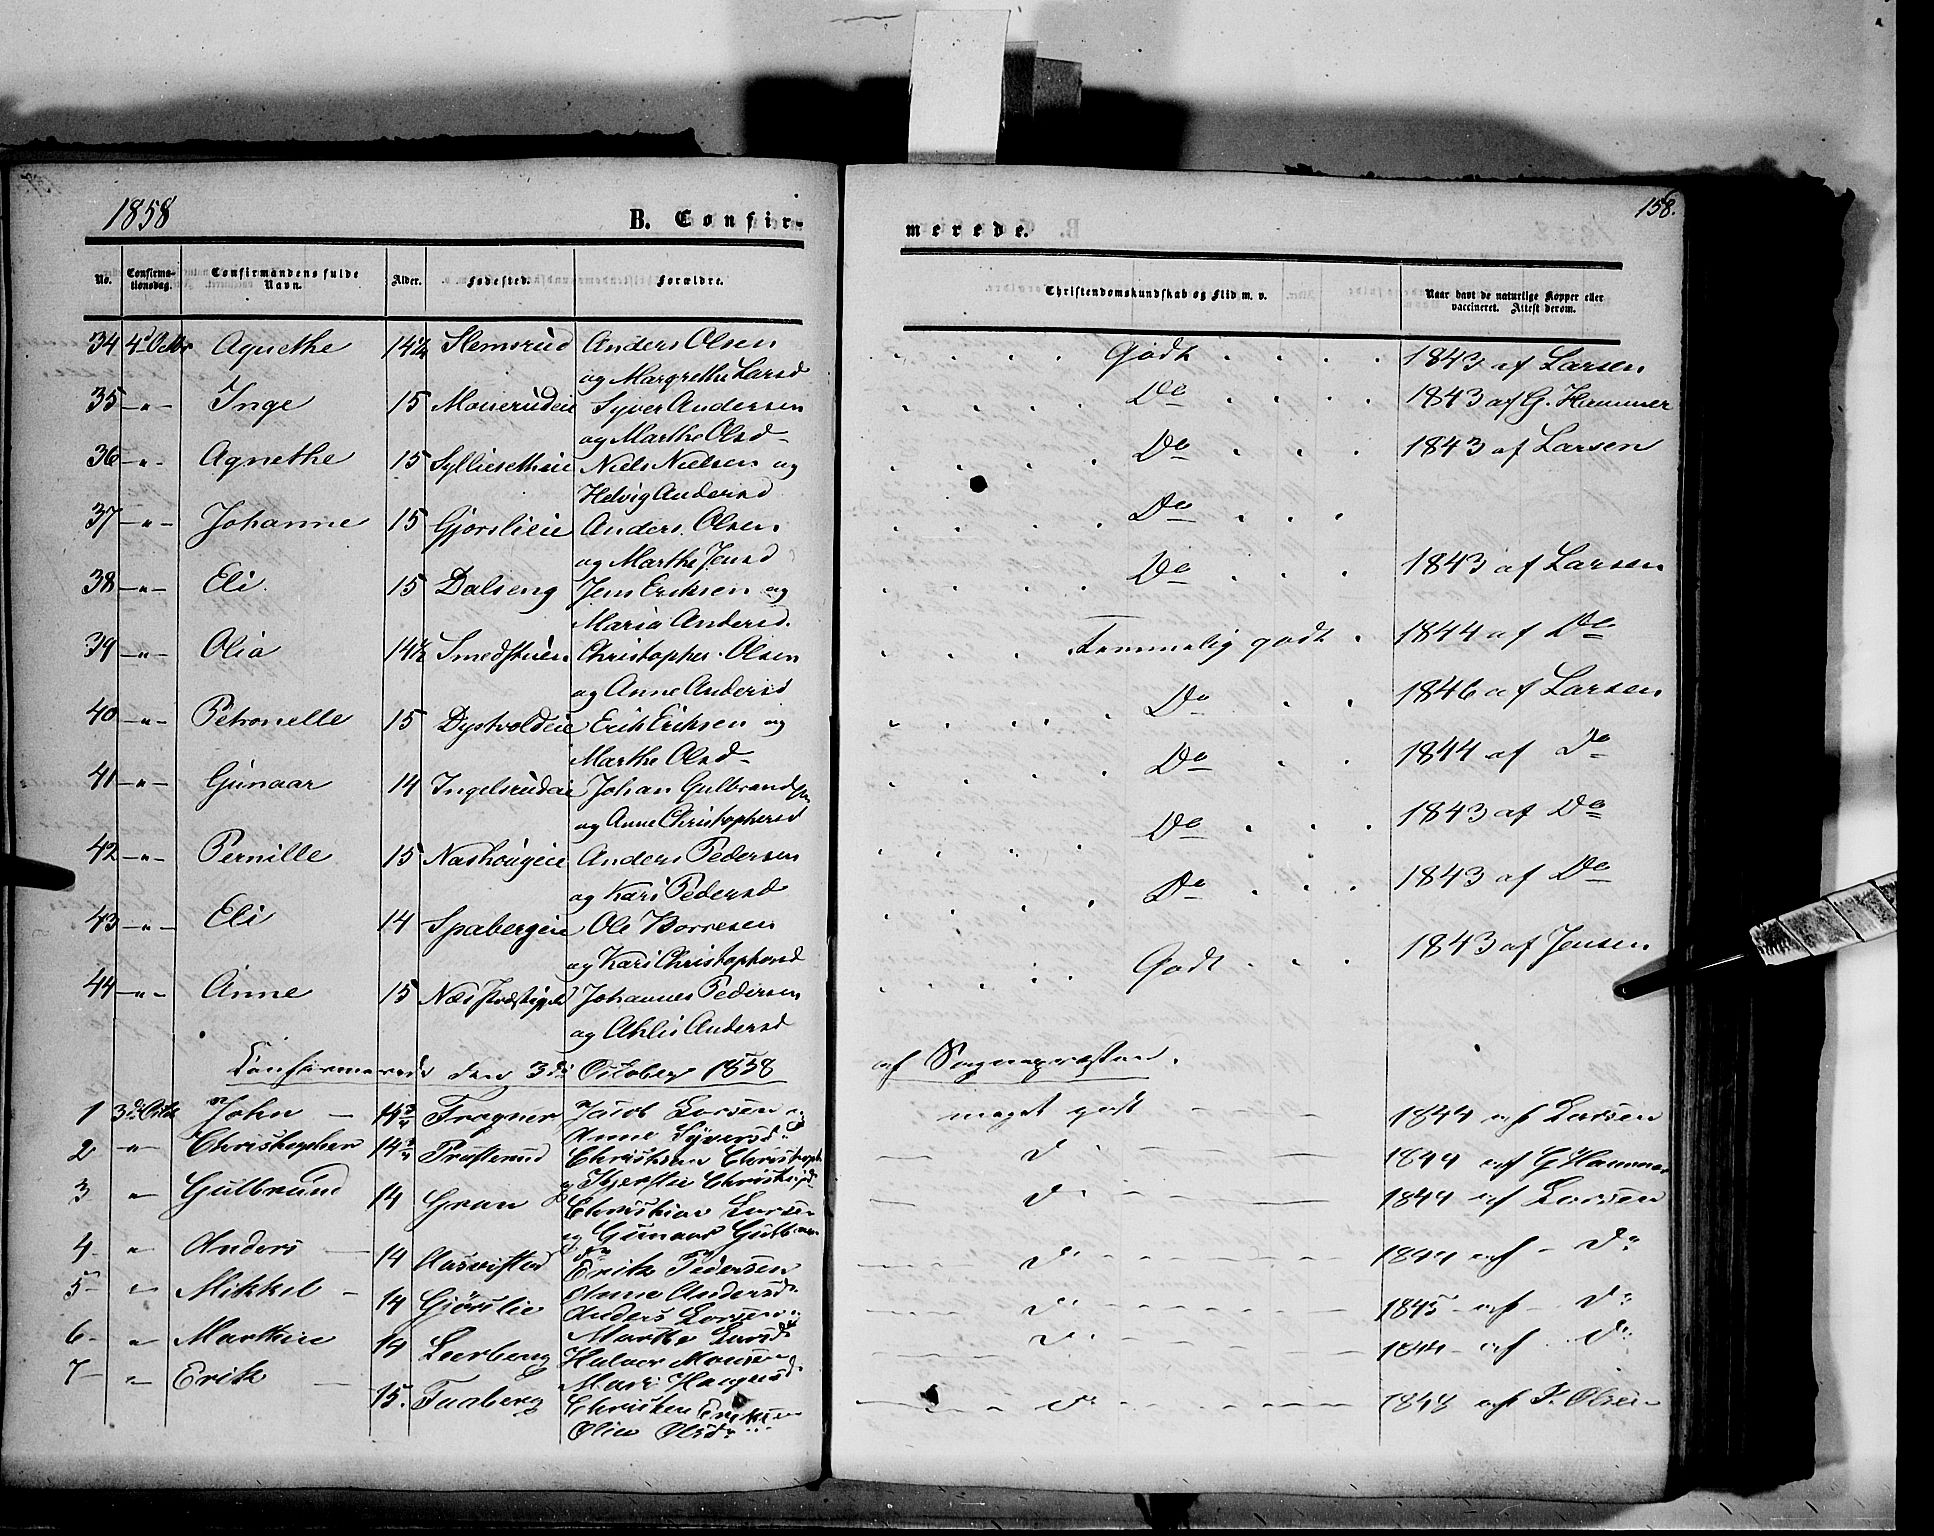 1858
B. Confir-
merede.
158.
No.
Confirma-
tionsdag.
Confirmandens fulde
Navn.
Alder.
Fødested.
Forældre.
Christendomskundskab og Flid m. v.
Naar havt de naturlige Kopper eller
vaccineret. Attest derom.
34 4d Octbr Agnethe 14½ Slemsrud Anders Olsen Godt 1843 af Larsen
og Margrethe Larsd
35 -"- Inge 15 Syver Andersen Do 1843 af G. Hammer
og Marthe Olsd
36 -"- Agnethe 15 Sylliesetheie Niels Nielsen og Do 1843 af Larsen
Helvig Andersd
37 -"- Johanne 15 Gjørslieie Anders Olsen Do
og Marthe Jensd
38 -"- Eli 15 Dalseng Jens Eriksen og Do 1843 af Larsen
Maria Andersd.
39 -"- Olia 14½ Smedstuen Christopher Olsen Temmelig godt 1844 af Do
og Anne Andersd
40 -"- Petronelle 15 Dystvoldeie Erik Eriksen og Do 1846 af Larsen
Marthe Olsd
41 -"- Gunaar 14 Ingelsrudeie Johan Gulbrandsen Do 1844 af Do
og Anne Christophersd
42 -"- Pernille 15 Nashougeie Anders Pedersen Do 1843 af Do
og Kari Pedersd
43 -"- Eli 14 Spabergeie Ole Borresen Do 1843 af Do
og Kari Christophersd
44 -"- Anne 15 Næs Johannes Pedersen Godt 1843 af Jensen
og Andersd
Confirmerede den 3die October 1858 af Sognepræsten.
1 3die Octbr John 14¾ Fragner Jacob Larsen og meget godt 1844 af Larsen
Anne Syversd
2 " Christopher 14¾ Præsterud Christian Christoph D 1844 af G Hammer
og Kjerstie Christophd
3 " Gulbrand 14 Gran Christian Larsen D 1844 af Larsen
og Gunaar Gulbran
4 " Anders 14 Erik Pedersen D 1844 af Do
Anne Andersd
5 " Mikkel 14 Gjørslie Anders Larsen D 1845 af Do
Marthe Larsd
6 " Marthin 14 Leerberg Halvor Monsen D 1844 af Do
Mari
7 " Erik 15. Faaberg Christen Eriksen D 1848 af J. Olsen
Olia Olsd